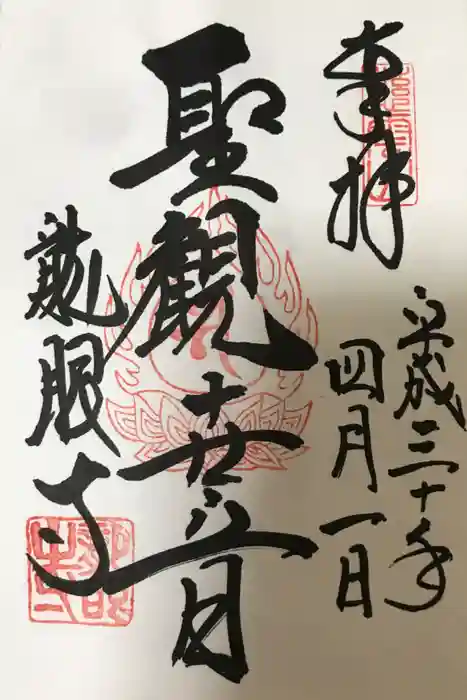 奉拝
平成三十年
四月一日
聖観世音
龍眼寺